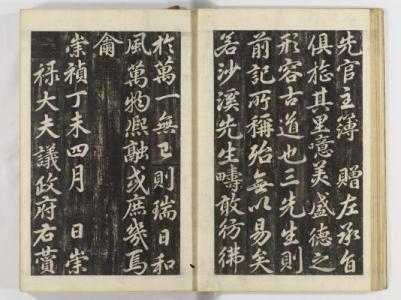 先官主簿 贈左承旨
俱於其里噫美盛德之
形容古道也三先生則
前記所稱殆無以易矣
若沙溪先生疇敢彷彿
於萬一無已則瑞日和
風萬物熙融或庶幾焉
崇禎丁未四月 日崇
祿大夫議政府右贊